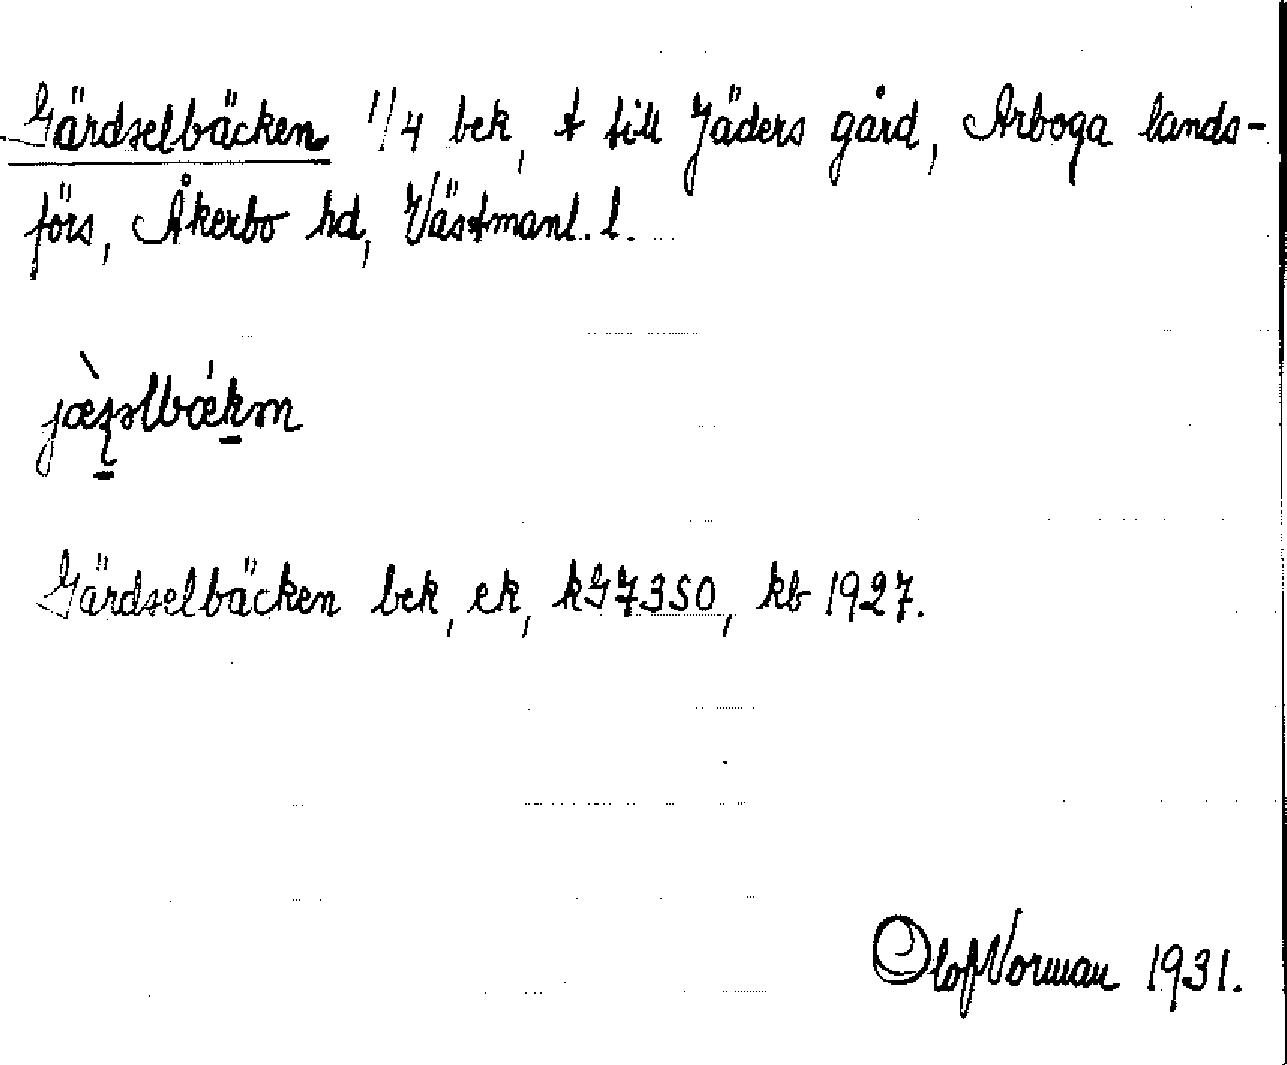 Gärdselbäcken 1/4 bek, t till Jäders gård, Arboga lands-
förs, Åkerbo hd, Västmanl. l.
Gärdselbäcken bek, ek, kG7350, kb 1927.
Olof Norman 1931.